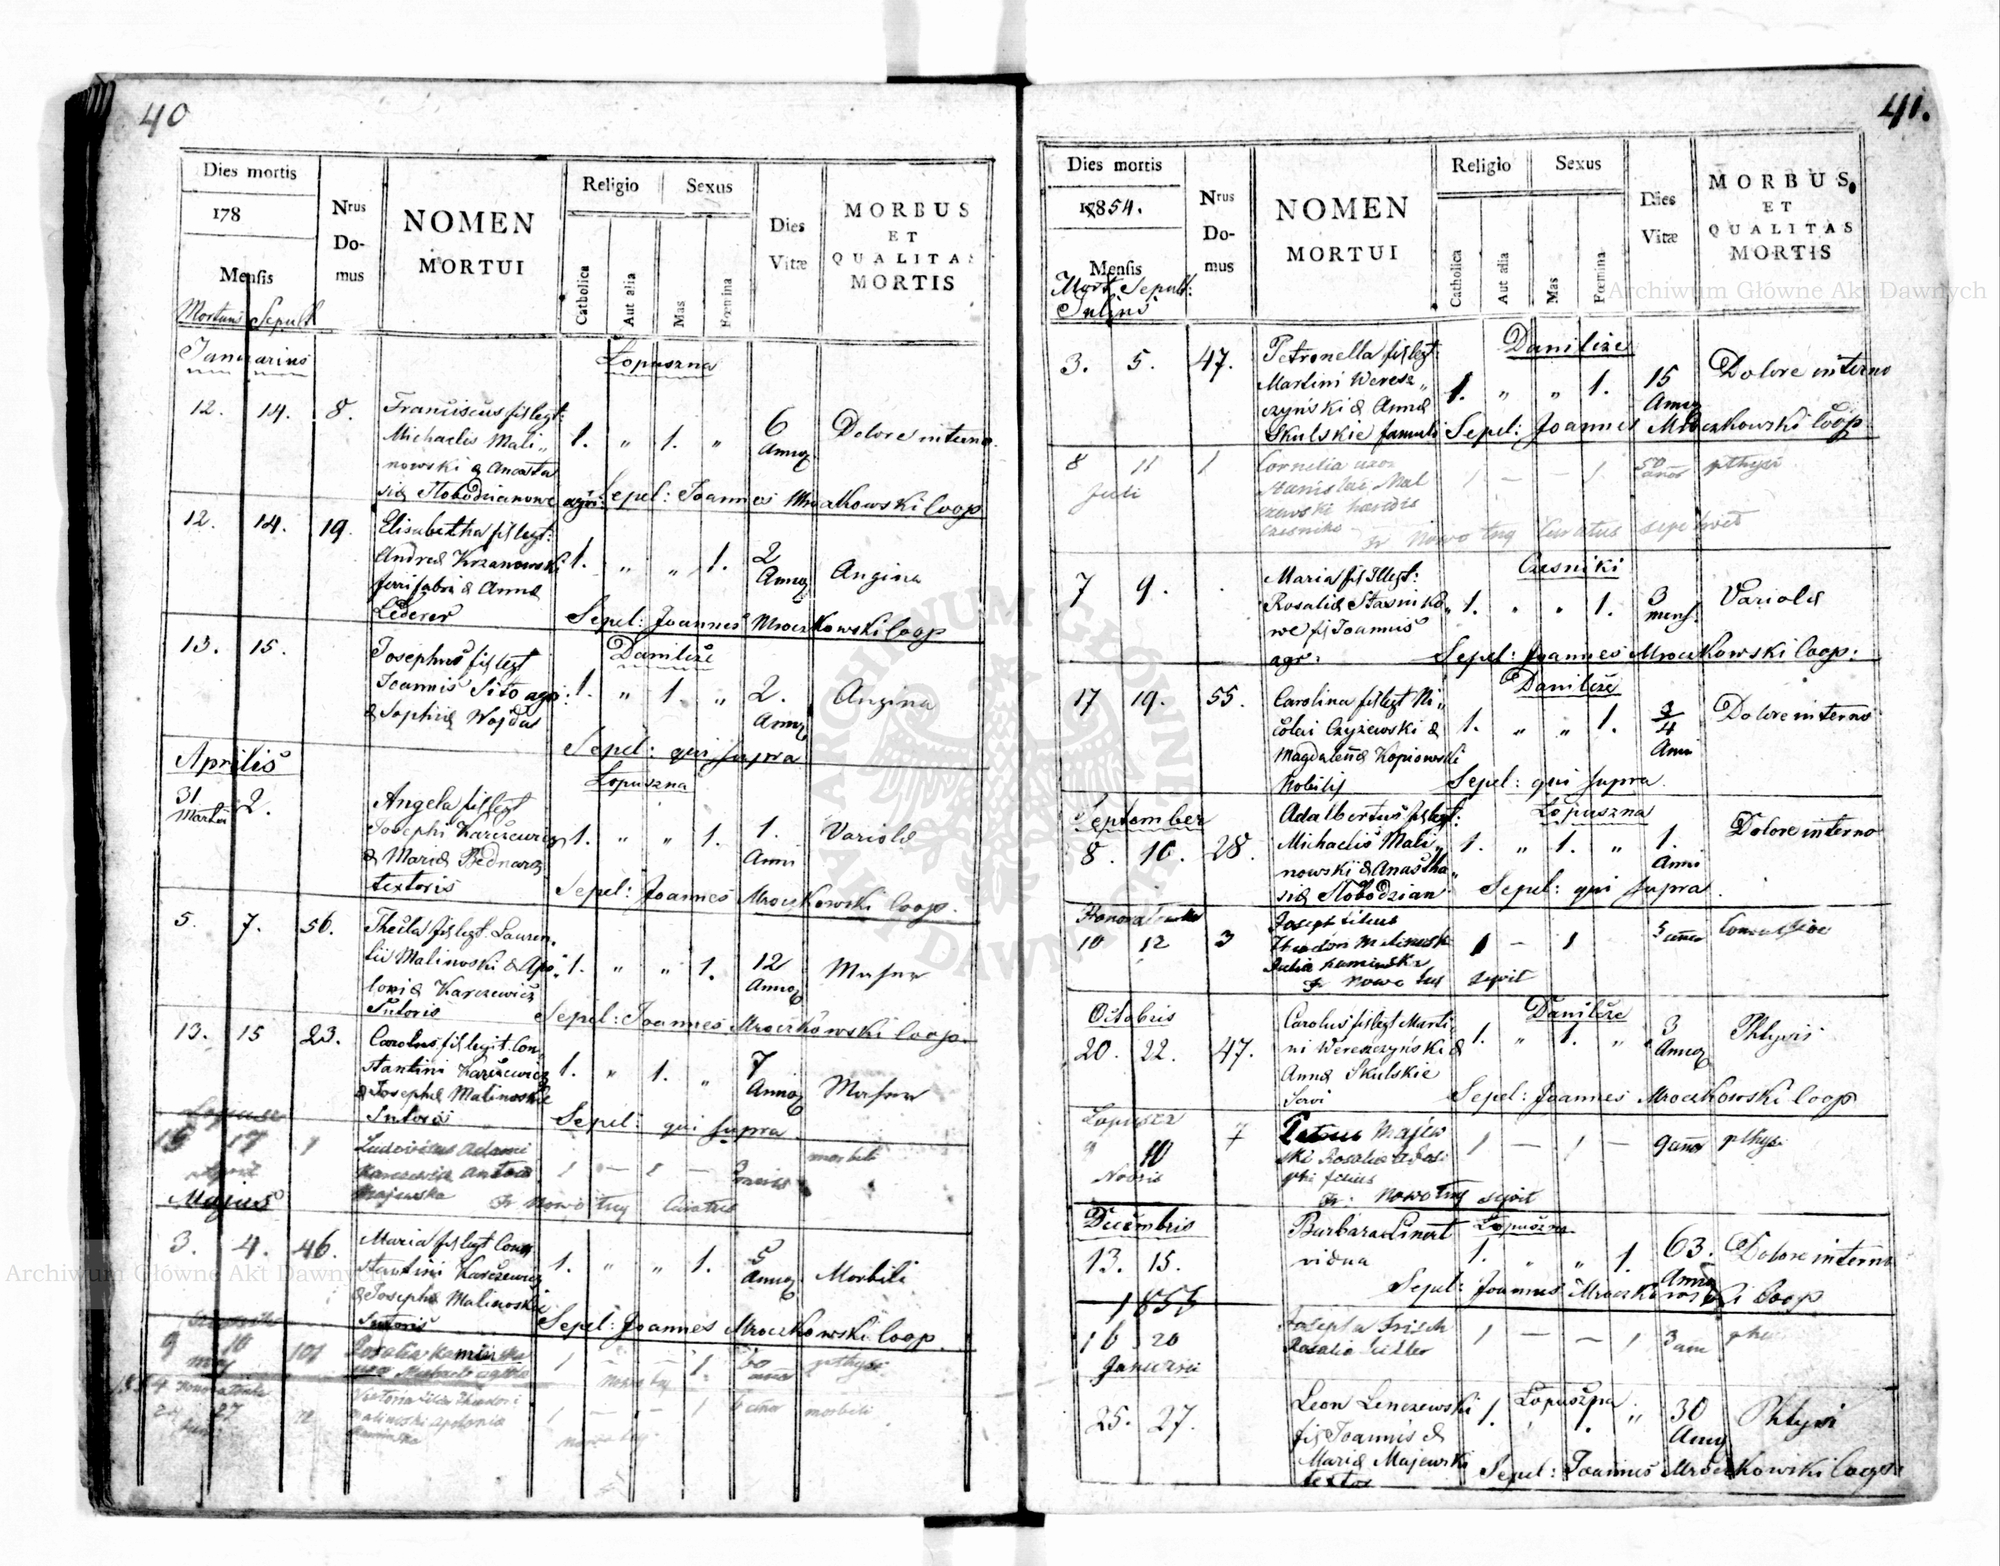 40
Dies mortis
178
Mensis
Mortuus Sepult
Nrus
Do-
mus
NOMEN
MORTUI
Religio
Sexus
Catholica
Aut alia
Mas
Fœmina
Dies
Vitæ
MORBUS
ET
QUALITAS
MORTIS
Januarius
Łopuszna
12. 14. 8. Franciscus fil legt:
Michaelis Mali„
nowski & Anasta
siæ Słobodzianowe agri:
1. „ 1. „ 6 Annoȝ Dolore interno
Sepel: Joannes Mroczkowski Coop
12. 14. 19. Elisabetha fil legt:
Andreæ Krzanowski
ferrifabri & Annæ
Lederer
1. „ „ 1. 2 Annoȝ Angina
Sepel: Joannes Mroczkowski Coop
13. 15. Danilcże
Josephus fil legt
Joannis Sito agri:
& Sophiæ Wojdas
1. „ 1 „ 2. Annoȝ Angina
Sepel: qui supra
Aprilis
Łopuszna
31 2.
Martii
Angela fil legt
Josephi Karczewicz
& Mariæ Bednarz
textoris
1. „ „ 1. 1. Anni Variole
Sepel: Joannes Mroczkowski Coop.
5. 7. 56. Thecla fil legt. Lauren„
tii Malinoski & Apo„
loniæ Karczewicz
Sutoris
1. „ „ 1. 12 Annoȝ
Sepel: Joannes Mroczkowski Coop.
13. 15 23. Carolus fil legit. Con„
stantini Karczewicz
& Josephæ Malinoskie
Sutoris
1. „ 1. „ 7 Annoȝ
Sepel: qui supra
16 17 1 Ludovicus Adami
Karczewicz Antonia
Majewska
1 — 1 — morbili
Fr Nowotny Curatus
Majus
3. 4. 46. Maria fil legt Con„
stantini Karczewicz
& Josephæ Malinoskie
Sutoris
1. „ „ 1. 5 Annoȝ Morbili
Sepel: Joannes Mroczkowski Coop.
9 10 101 Rosalia Kaminska
may
1 — — 1. 60 phtysi
27 Victoria filia Theodori
Malinoski Apolonia
Kaminska
1 — — 1 morbili
41.
Dies mortis
17854.
Mensis
Mort. Sepult:
Julius
Nrus
Do-
mus
NOMEN
MORTUI
Religio
Sexus
Catholica
Aut alia
Mas
Fœmina
Dies
Vitæ
MORBUS
ET
QUALITAS
MORTIS
Danilcże
3. 5. 47. Petronella fil legt:
Martini Weresz„
czyński & Annæ
Skulskie famuli
1. „ „ 1. 15 Annoȝ Dolore interno
Sepel: Joannes Mroczkowski Coop
8 11 1 Cornelia uxor
Juli
Stanislai Mal
czewski hæredis
Czesniki
1 — — 1 50 phtysi
Fr Nowotny Curatus sepelivit
Czesniki
7 9. Maria fil Illegt:
Rosaliæ Stasinko„
we fil Joannis
agr:
1. „ „ 1. 3 mens. Variole
Sepel: Joannes Mroczkowski Coop:
Danilcże
17 19. 55. Carolina fil legt Ni„
colai Czyżewski &
Magdalenæ Kopiowski
Nobilis
1. „ „ 1. 3/4 Anni Dolore interno
Sepel: qui supra
September
Łopuszna
8. 10. 28. Adalbertus fil legt:
Michaelis Mali„
nowski & Anastha„
siæ Słobodzian
1. „ 1. „ 1. Anni Dolore interno
Sepel: qui supra.
10 12 3 Joseph filius
Theodori Malinoski
Julia Kaminska
1 — 1
Fr Nowotny sepvit
Octobris
Danilcże
20. 22. 47. Carolus fil legt Marti„
ni Wereszczyński &
Annæ Skulskie
Servi
1. „ 1. „ 3 Annoȝ Phtysis
Sepel: Joannes Mroczkowski Coop
10 7 Petrus Majew
Nobris
ski Rosalia
phi filius
1 — 1 — phtysi
Fr. Nowotny sepvit
Decembris
Łopuszna
13. 15. Barbara Linert
vidua
1. „ „ 1 63. Annoȝ Dolore interno
Sepel: Joannes Mroczkowski Coop
1855
16 20 Josepha Frisch
Januarii
Rosalia
1 — — 1
Łopuszna
25. 27. Leon Lenczewski
fil Joannis &
Mariæ Majewski
textor
1. „ 1. „ 30 Annoȝ Phtysi
Sepel: Joannes Mroczkowski Coop:
Archiwum Główne Akt Dawnych
Archiwum Główne Akt Dawnych
ARCHIWUM GŁÓWNE AKT DAWNYCH